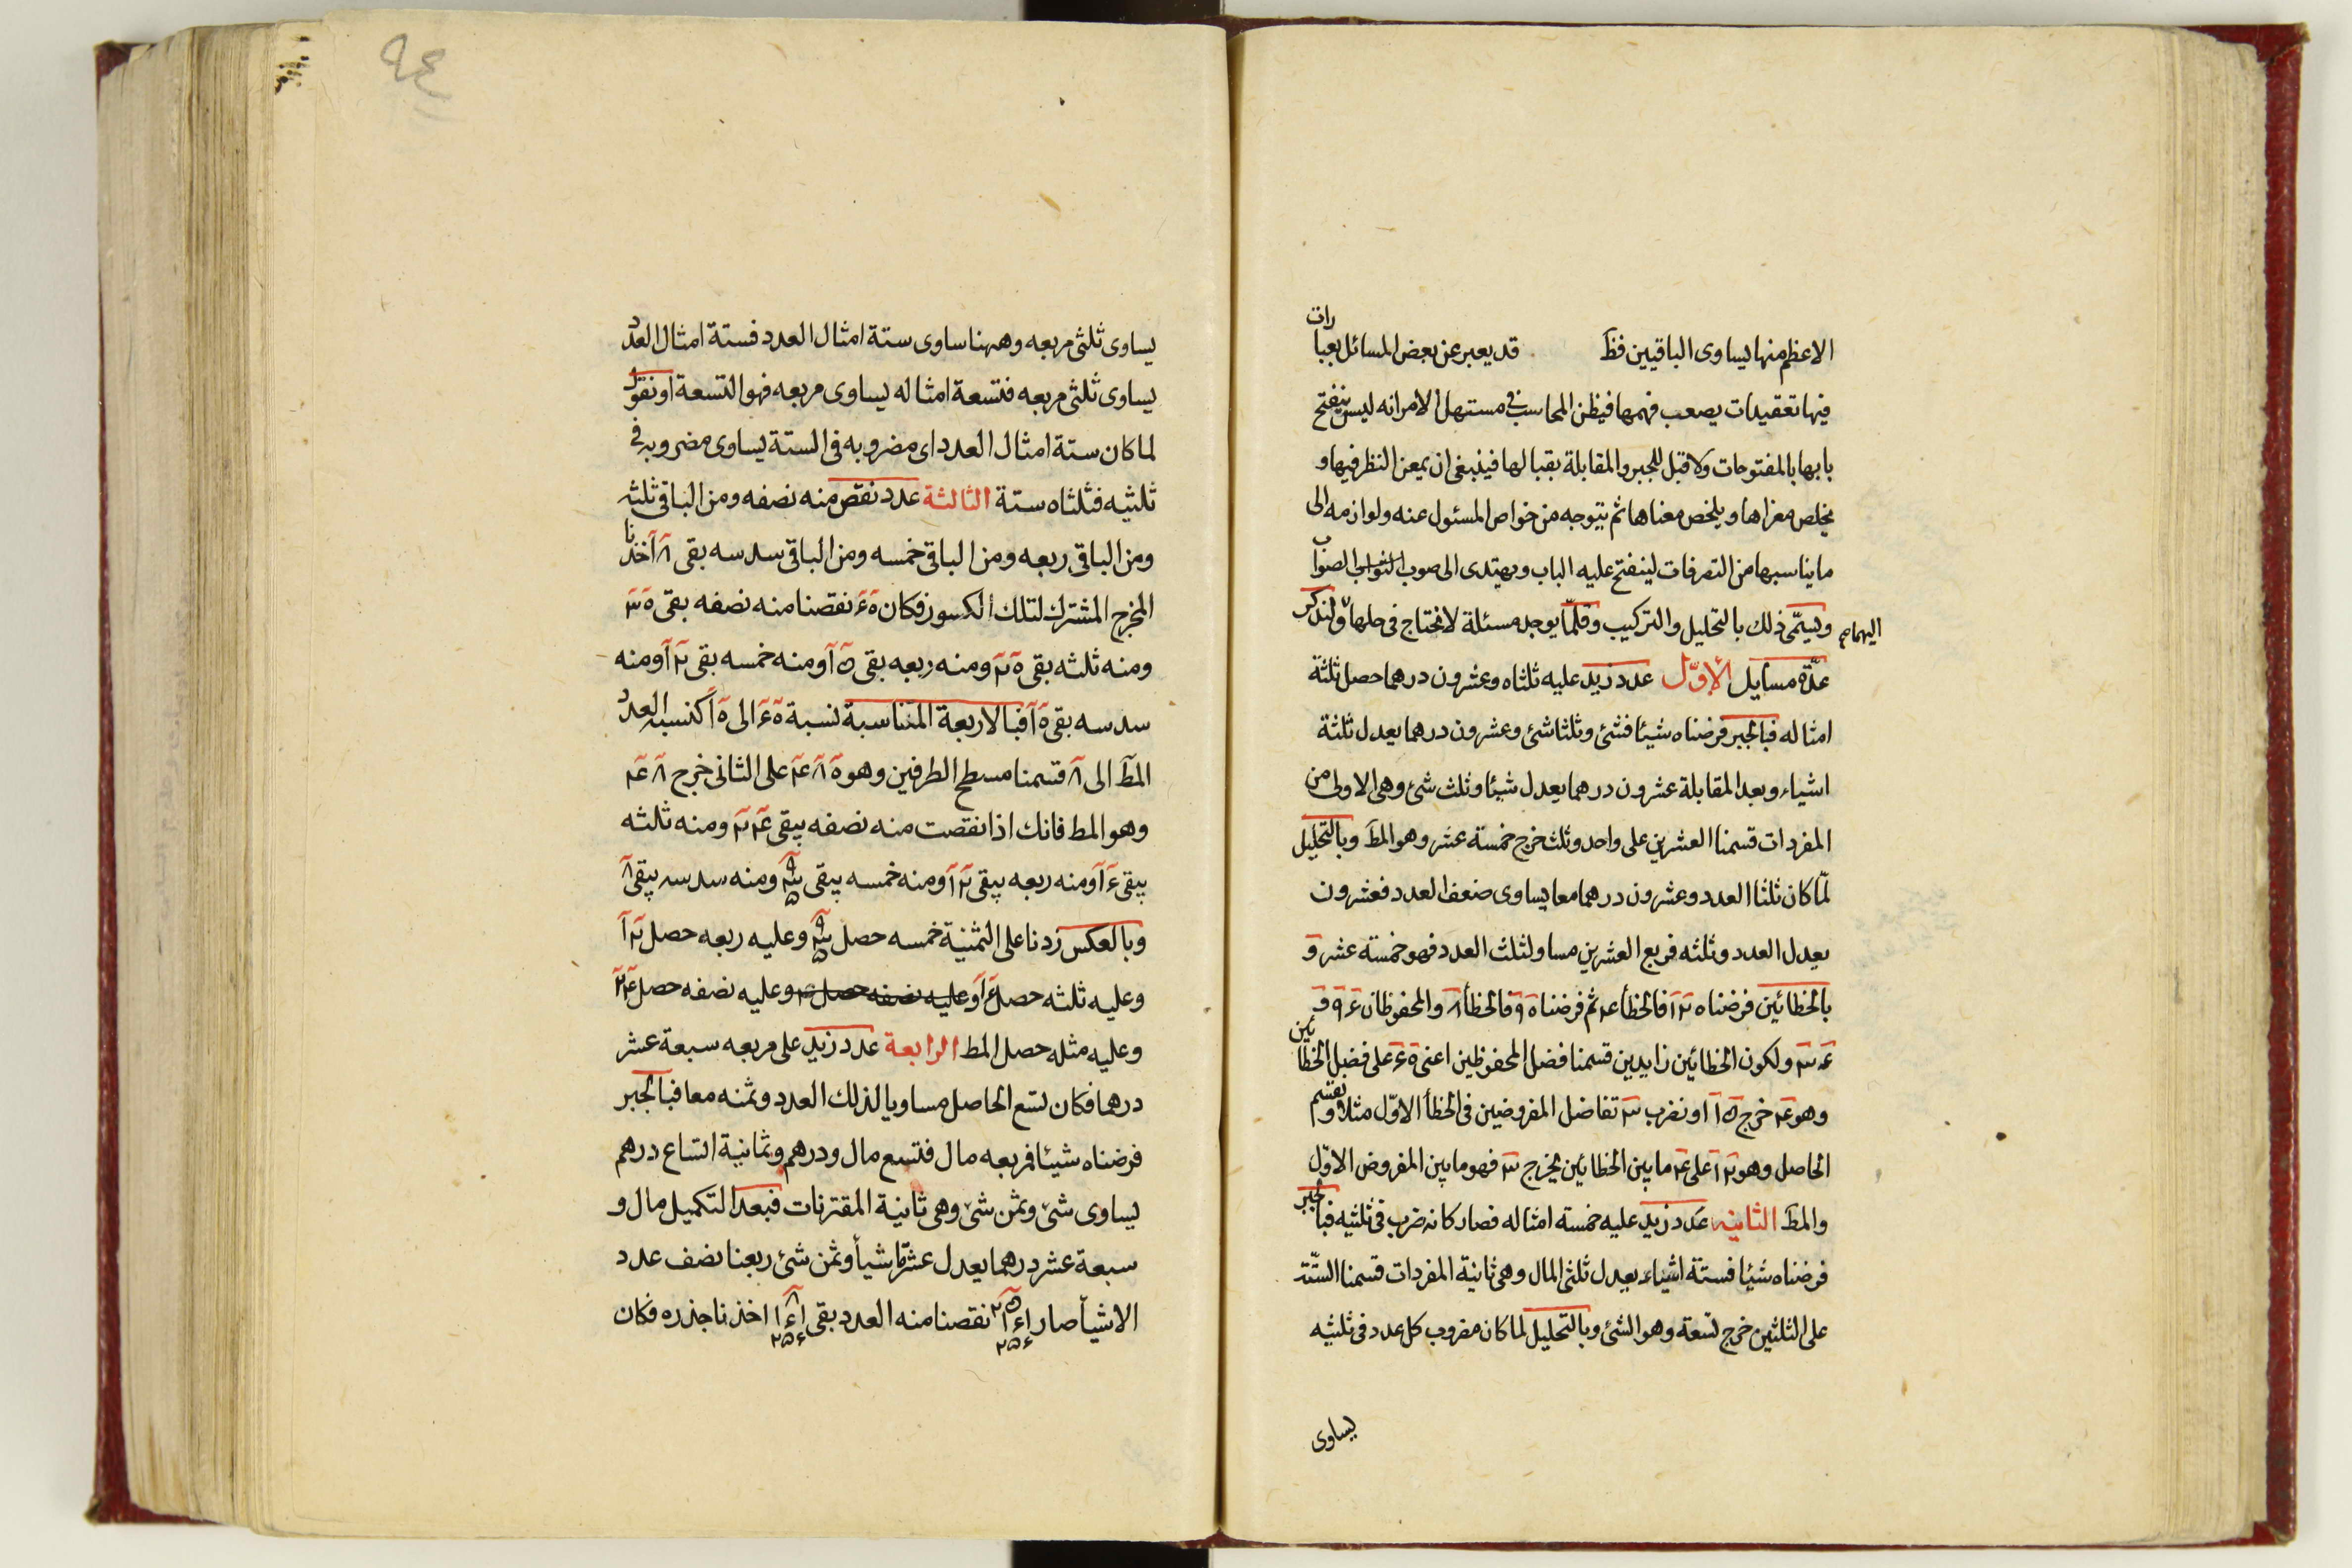 الاعظم منها يساوى الباقيين فظ قد يعبر عن بعض المسائل بعبارات
فيها تعقيدات يصعب فهمها فيظن المحاسب فى مستهل الامر انه ليس ينفتح
بابها بالمفتوحات ولا قبل للجبر والمقابلة بقبالها فينبغى ان يمعن النظر فيها و
يخلص مغزاها ويلخص معناها ثم يتوجه من خواص المسئول عنه ولوازمه الى
ما يناسبها من التصرفات لينفتح عليه الباب ويهتدى الى صوب الثواب الصواب
ويسمّى ذلك بالتحليل والتركيب وقلمّا يوجد مسئلة لا نحتاج فى حلها ولنذكر
اليهما م
عدّة مسايل الاوّل عدد زيد عليه ثلثاه وعشرون درهما حصل ثلثة
امثاله فبالجبر فرضناه شيئا فشئ وثلثا شئ وعشرون درهما يعدل ثلثة
اشياء وبعد المقابلة عشرون درهما يعدل شيئا وثلث شئ وهى الاولى من
المفردات قسمنا العشرين على واحد وثلث خرج خمسة عشر وهو المط وبالتحليل
لمّا كان ثلثا العدد وعشرون درهما معا يساوى ضعف العدد فعشرون
يعدل العدد وثلثه فربع العشرين مساو لثلث العدد فهو خمسة عشر و
بالخطائين فرضناه ١٢ فالخطأ ٤ ثم فرضناه ٩ فالخطأ ٨ والمحفوظان ٩٦ و
٣٦ ولكون الخطائين زايدين قسمنا فضل المحفوظين اعنى ٦٠ على فضل الخطائين
وهو ٤ خرج ١٥ او نضرب ٣ تفاضل المفروضين فى الخطأ الاوّل مثلا ونقسم
الحاصل وهو ١٢ على ٤ ما بين الخطائين يخرج ٣ فهو ما بين المفروض الاوّل
والمط الثانيه عدد زيد عليه خمسة امثاله فصار كانه ضرب فى ثلثيه فبالجبر
فرضناه شيئا فستة اشياء يعدل ثلثى المال وهى ثانية المفردات قسمنا الستّة
على الثلثين خرج تسعة وهو الشئ وبالتحليل لما كان مضروب كل عدد فى ثلثيه
يساوى
٩٤
يساوى ثلثى مربعه وههنا ساوى ستة امثال العدد فستة امثال العدد
يساوى ثلثى مربعه فتسعة امثاله يساوى مربعه فهو التسعة او نقول
لما كان ستة امثال العدد اى مضروبه فى الستة يساوى مضروبه فى
ثلثيه فثلثاه ستة الثالثة عدد نقص منه نصفه ومن الباقى ثلثه
ومن الباقى ربعه ومن الباقى خمسه ومن الباقى سدسه بقى ٨ اخذنا
المخرج المشترك لتلك الكسور فكان ٦٠ نقصنا منه نصفه بقى ٣٠
ومنه ثلثه بقى ٢٠ ومنه ربعه بقى ١٥ ومنه خمسه بقى ١٢ ومنه
سدسه بقى ١٠ فبالاربعة المتناسبة نسبة ٦٠ الى ١٠ كنسبة العدد
المط الى ٨ قسمنا مسطح الطرفين وهو ٤٨٠ على الثانى خرج ٤٨
وهو المط فانك اذا نقصت منه نصفه يبقى ٢٤ ومنه ثلثه
يبقى ١٦ ومنه ربعه يبقى ١٢ ومنه خمسه يبقى ٩ ٣ ٥ ومنه سدسه يبقى ٨
وبالعكس زدنا على الثمنية خمسه حصل ٩ ٣ ٥ وعليه ربعه حصل ١٢
وعليه ثلثه حصل ١٦ وعليه نصفه حصل وعليه نصفه حصل ٢٤
وعليه مثله حصل المط الرابعة عدد زيد على مربعه سبعة عشر
درهما فكان تسع الحاصل مساويا لذلك العدد وثمنه معا فبالجبر
فرضناه شيئا فمربعه مال فتسع مال ودرهم وثمانية اتساع درهم
يساوى شئ وثمن شئ وهى ثانية المقترنات فبعد التكميل مال و
سبعة عشر درهما يعدل عشرة اشيأ وثمن شئ ربعنا نصف عدد
الاشيأ صار نقصنا منه العدد بقى اخذنا جذره فكان